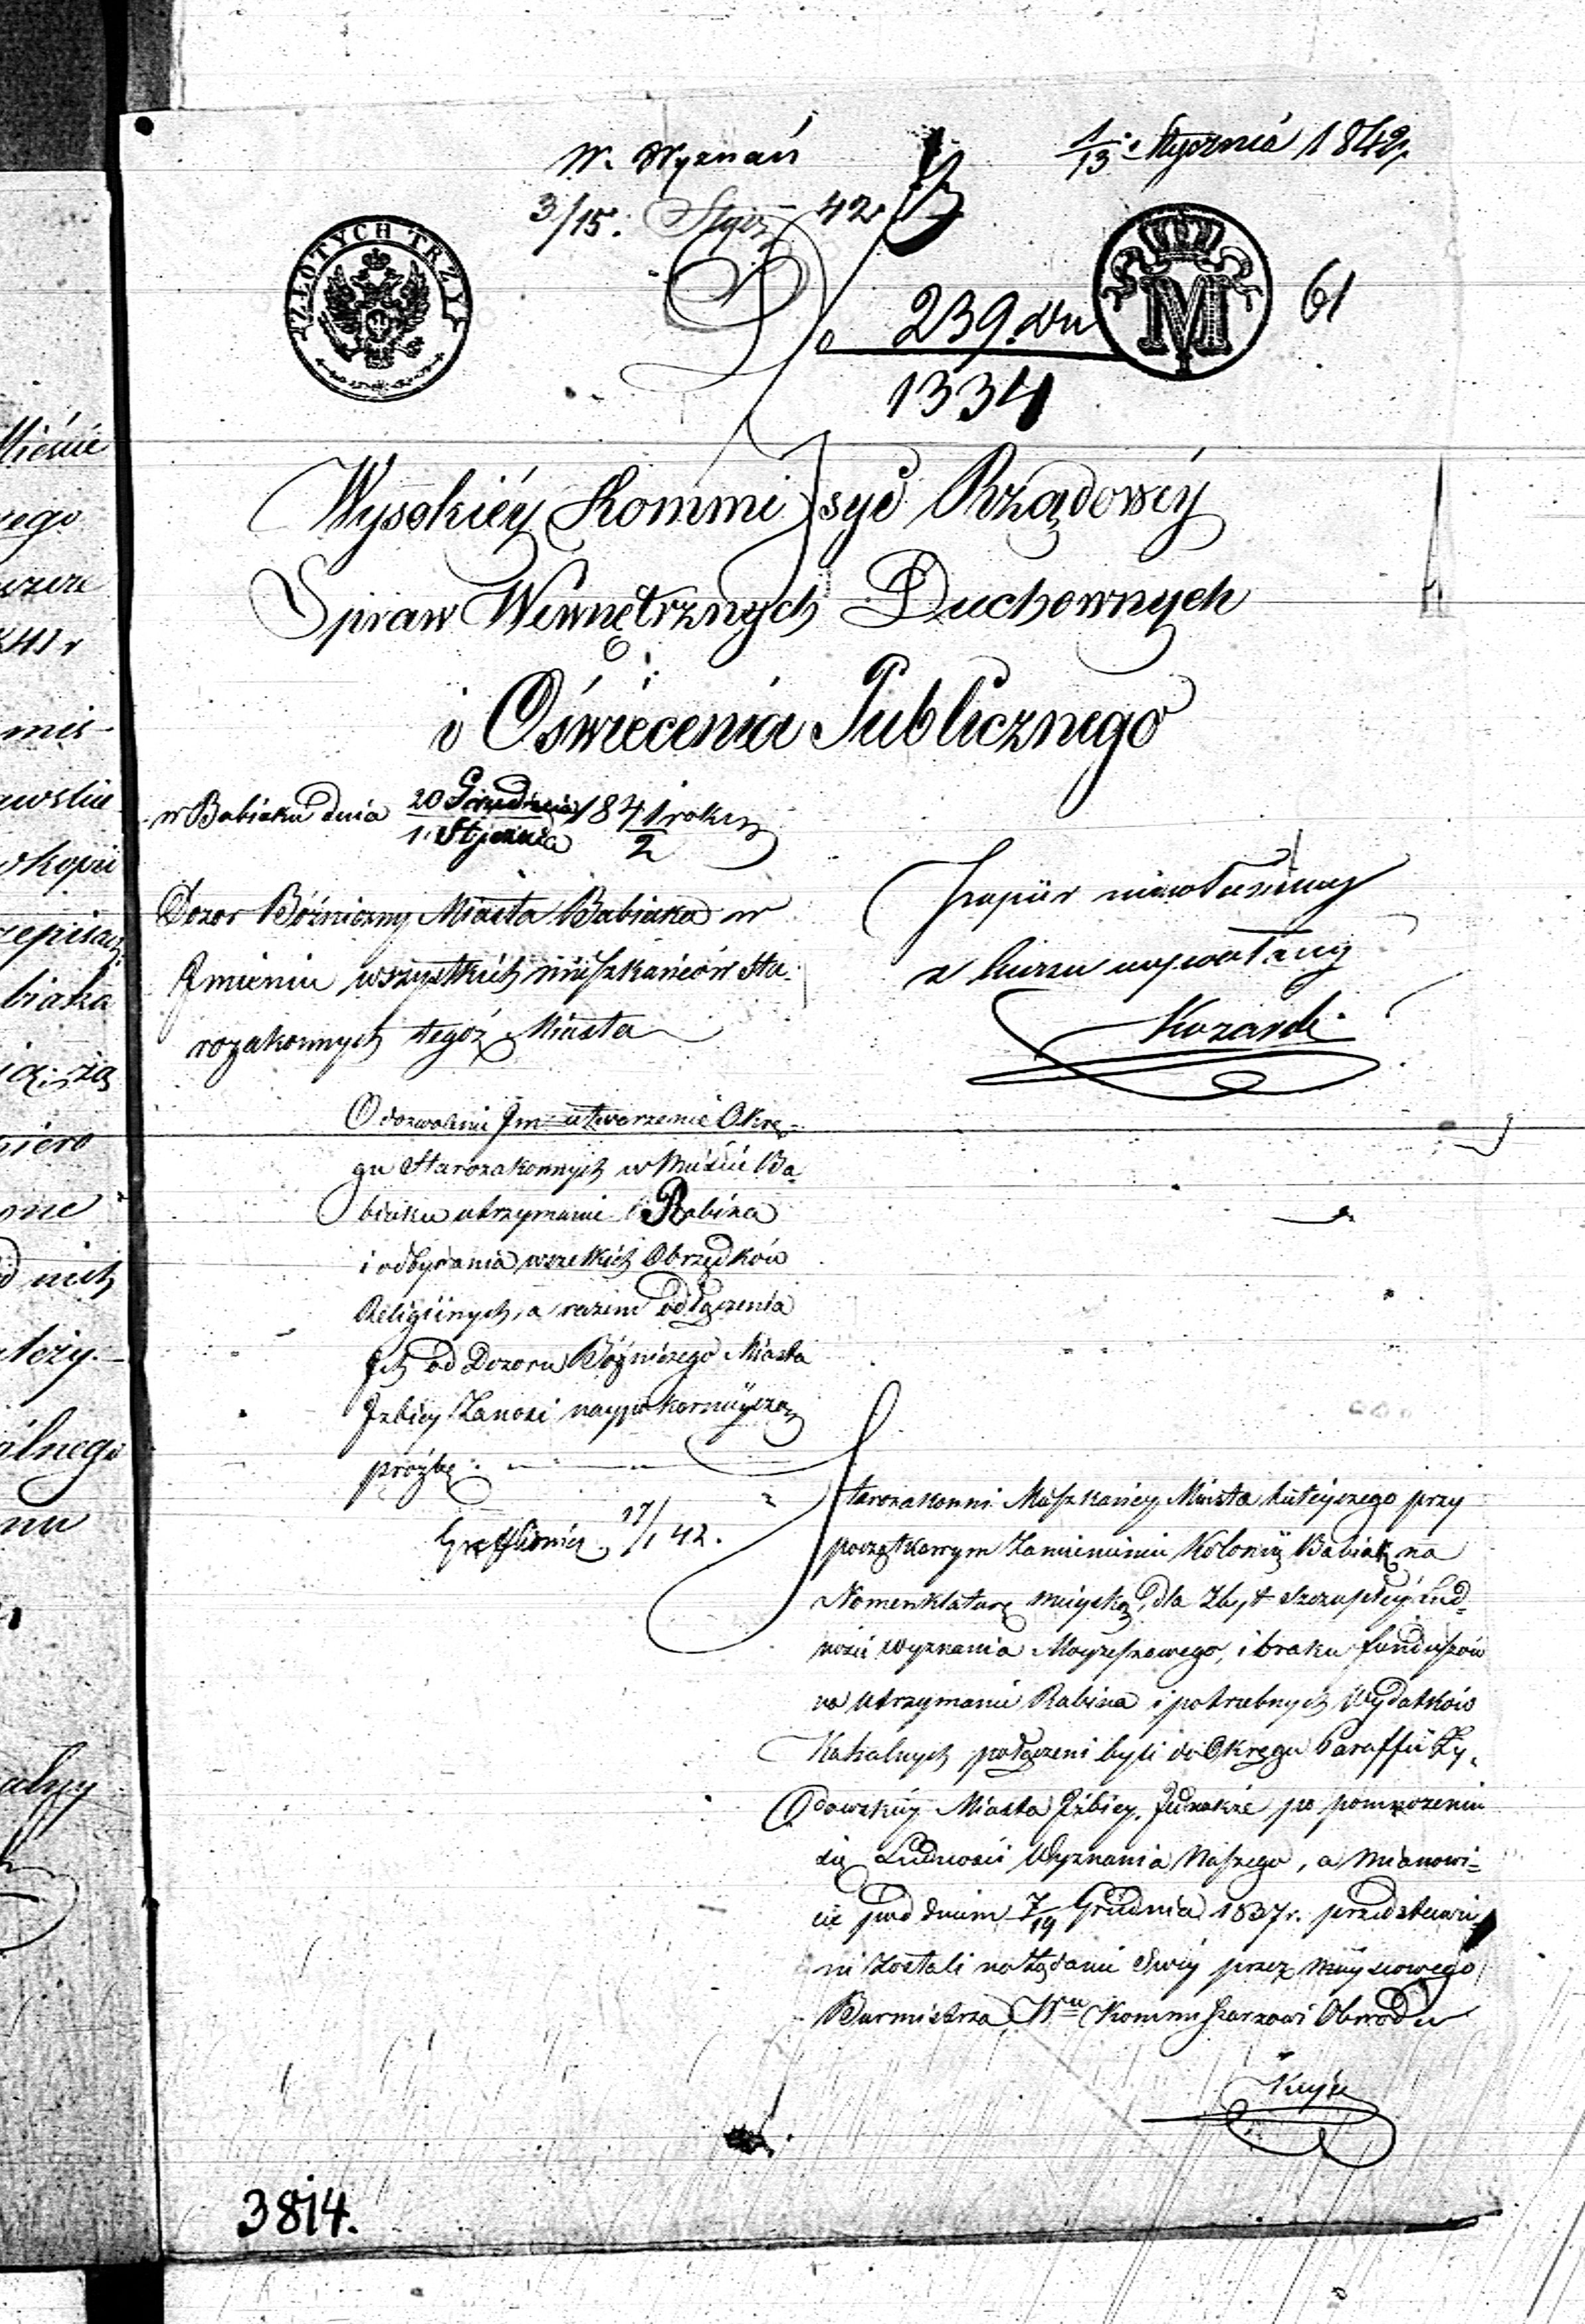 W. Wyznań
1/13 Stycznia 1842
3/15. Stycz 42.
ZŁOTYCH TRZY
M
61
239.
1334
Wysokiéy Kommissyi Rządowéy
Spraw Wewnętrznych Duchownych
i Oświecenia Publicznego
w Babiaku dnia 20 Grudnia / 1. Stycznia 1841/2 roku
Dozor Bóżniczny Miasta Babiaka w
Imieniu wszystkich mieszkańców Sta-
rozakonnych tegóż Miasta
Papier niewłaściwy
O dozwolenie Im utworzenie Okrę-
gu Starozakonnych w Mieście Ba-
biaku utrzymanie Rabina
i odbywania wszelkich Obrzędków
Religiinych, a razem odłączenia
Ich od Dozoru Bóżniczego Miasta
Izbicy Zanosi naypokornieyszą
proźbę.
17/1 42.
Starozakonni Mieszkańcy Miasta tuteyszego przy
początkowym Zamienieniu Kolonii Babiak na
Nomenklaturę mieyską, dla Zbyt szczupłey Lud-
ności wyznania Moyżeszowego, i braku funduszów
na utrzymanie Rabina i potrzebnych Wydatków
Kahalnych połączeni byli do Okręgu Paraffii Ży-
dowskiey Miasta Izbicy. Jednakże po pomnożeniu
się Ludności Wyznania Naszego, a mianowi-
cie pod dniem 7/19 Grudnia 1837 r. przedstawie-
ni zostali na żądanie Swéy przez mieyscowego
Burmistrza Wu Kommissarzowi Obwodu
3814.